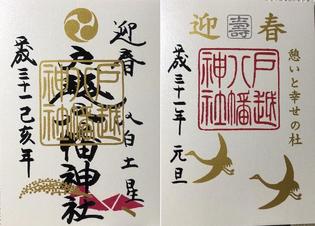 迎春
八白土星
戸越八幡神社
戸越
八幡
神社
平成三十一己亥年
迎
壽
春
憩いと幸せの杜
戸越
八幡
神社
平成三十一年 元旦